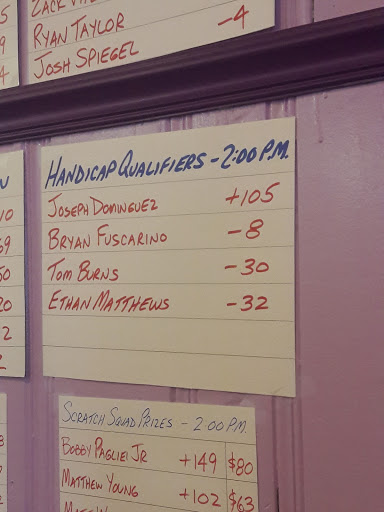 RYAN TAYLOR -4
JOSH SPIEGEL
HANDICAP QUALIFIERS - 2:00 P.M.
JOSEPH DOMINGUEZ +105
BRYAN FUSCARINO -8
TOM BURNS -30
ETHAN MATTHEWS -32
SCRATCH SQUAD PRIZES - 2:00 P.M.
BOBBY PAGLIEI JR +149 $80
MATTHEW YOUNG +102 $63